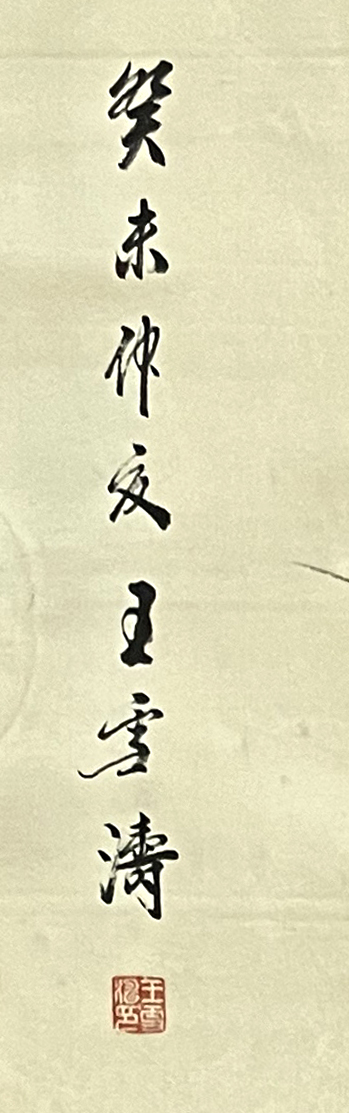 癸未仲夏王雪濤
王雪濤印